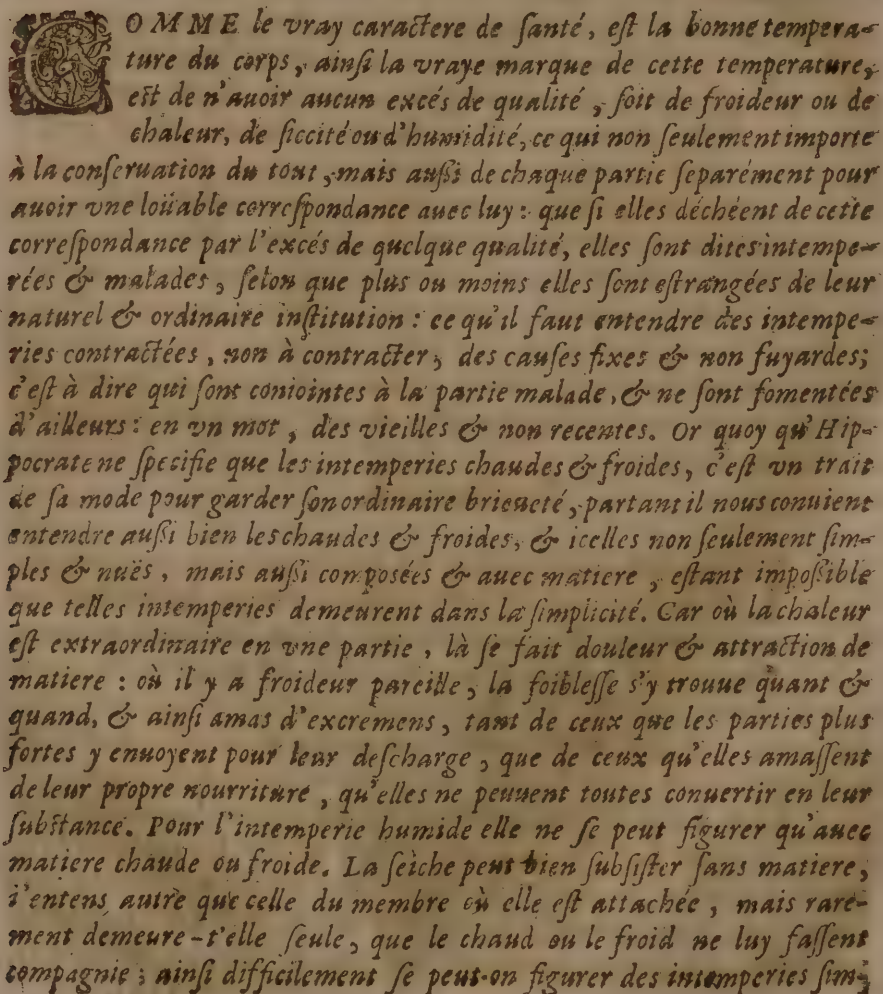 COMME le vray caractere de ſanté, eſt la bonne tempera-
ture du corps, ainſi la vraye marque de cette temperature,
eſt de n'auoir aucun excés de qualité, ſoit de froideur ou de
chaleur, de ſiccité ou d'humidité, ce qui non ſeulement importe
à la conſeruation du tout, mais auſſi de chaque partie ſeparément pour
auoir vne loüable correſpondance auec luy: que ſi elles déchéent de cette
correſpondance par l'excés de quelque qualité, elles ſont dites intempe-
rées & malades, ſelon que plus ou moins elles ſont eſtrangées de leur
naturel & ordinaire inſtitution: ce qu'il faut entendre des intempe-
ries contractées, non à contracter, des cauſes fixes & non fuyardes;
c'eſt à dire qui ſont coniointes à la partie malade, & ne ſont fomentées
d'ailleurs: en vn mot, des vieilles & non recentes. Or quoy qu'Hip-
pocrate ne ſpecifie que les intemperies chaudes & froides, c'eſt vn trait
de ſa mode pour garder ſon ordinaire brieueté, partant il nous conuient
entendre auſſi bien les chaudes & froides, & icelles non ſeulement ſim-
ples & nuës, mais auſſi composées & auec matiere, eſtant impoſſible
que telles intemperies demeurent dans la ſimplicité. Car où la chaleur
eſt extraordinaire en vne partie, là ſe fait douleur & attraction de
matiere: où il y a froideur pareille, la foibleſſe s'y trouue quant &
quand, & ainſi amas d'excremens, tant de ceux que les parties plus
fortes y enuoyent pour leur deſcharge, que de ceux qu'elles amaſſent
de leur propre nourriture, qu'elles ne peuuent toutes conuertir en leur
ſubſtance. Pour l'intemperie humide elle ne ſe peut figurer qu'auec
matiere chaude ou froide. La ſeiche peut bien ſubſiſter ſans matiere,
i'entens autre que celle du membre où elle eſt attachée, mais rare-
ment demeure-t'elle ſeule, que le chaud ou le froid ne luy faſſent
compagnie; ainſi difficilement ſe peut-on figurer des intemperies ſim-